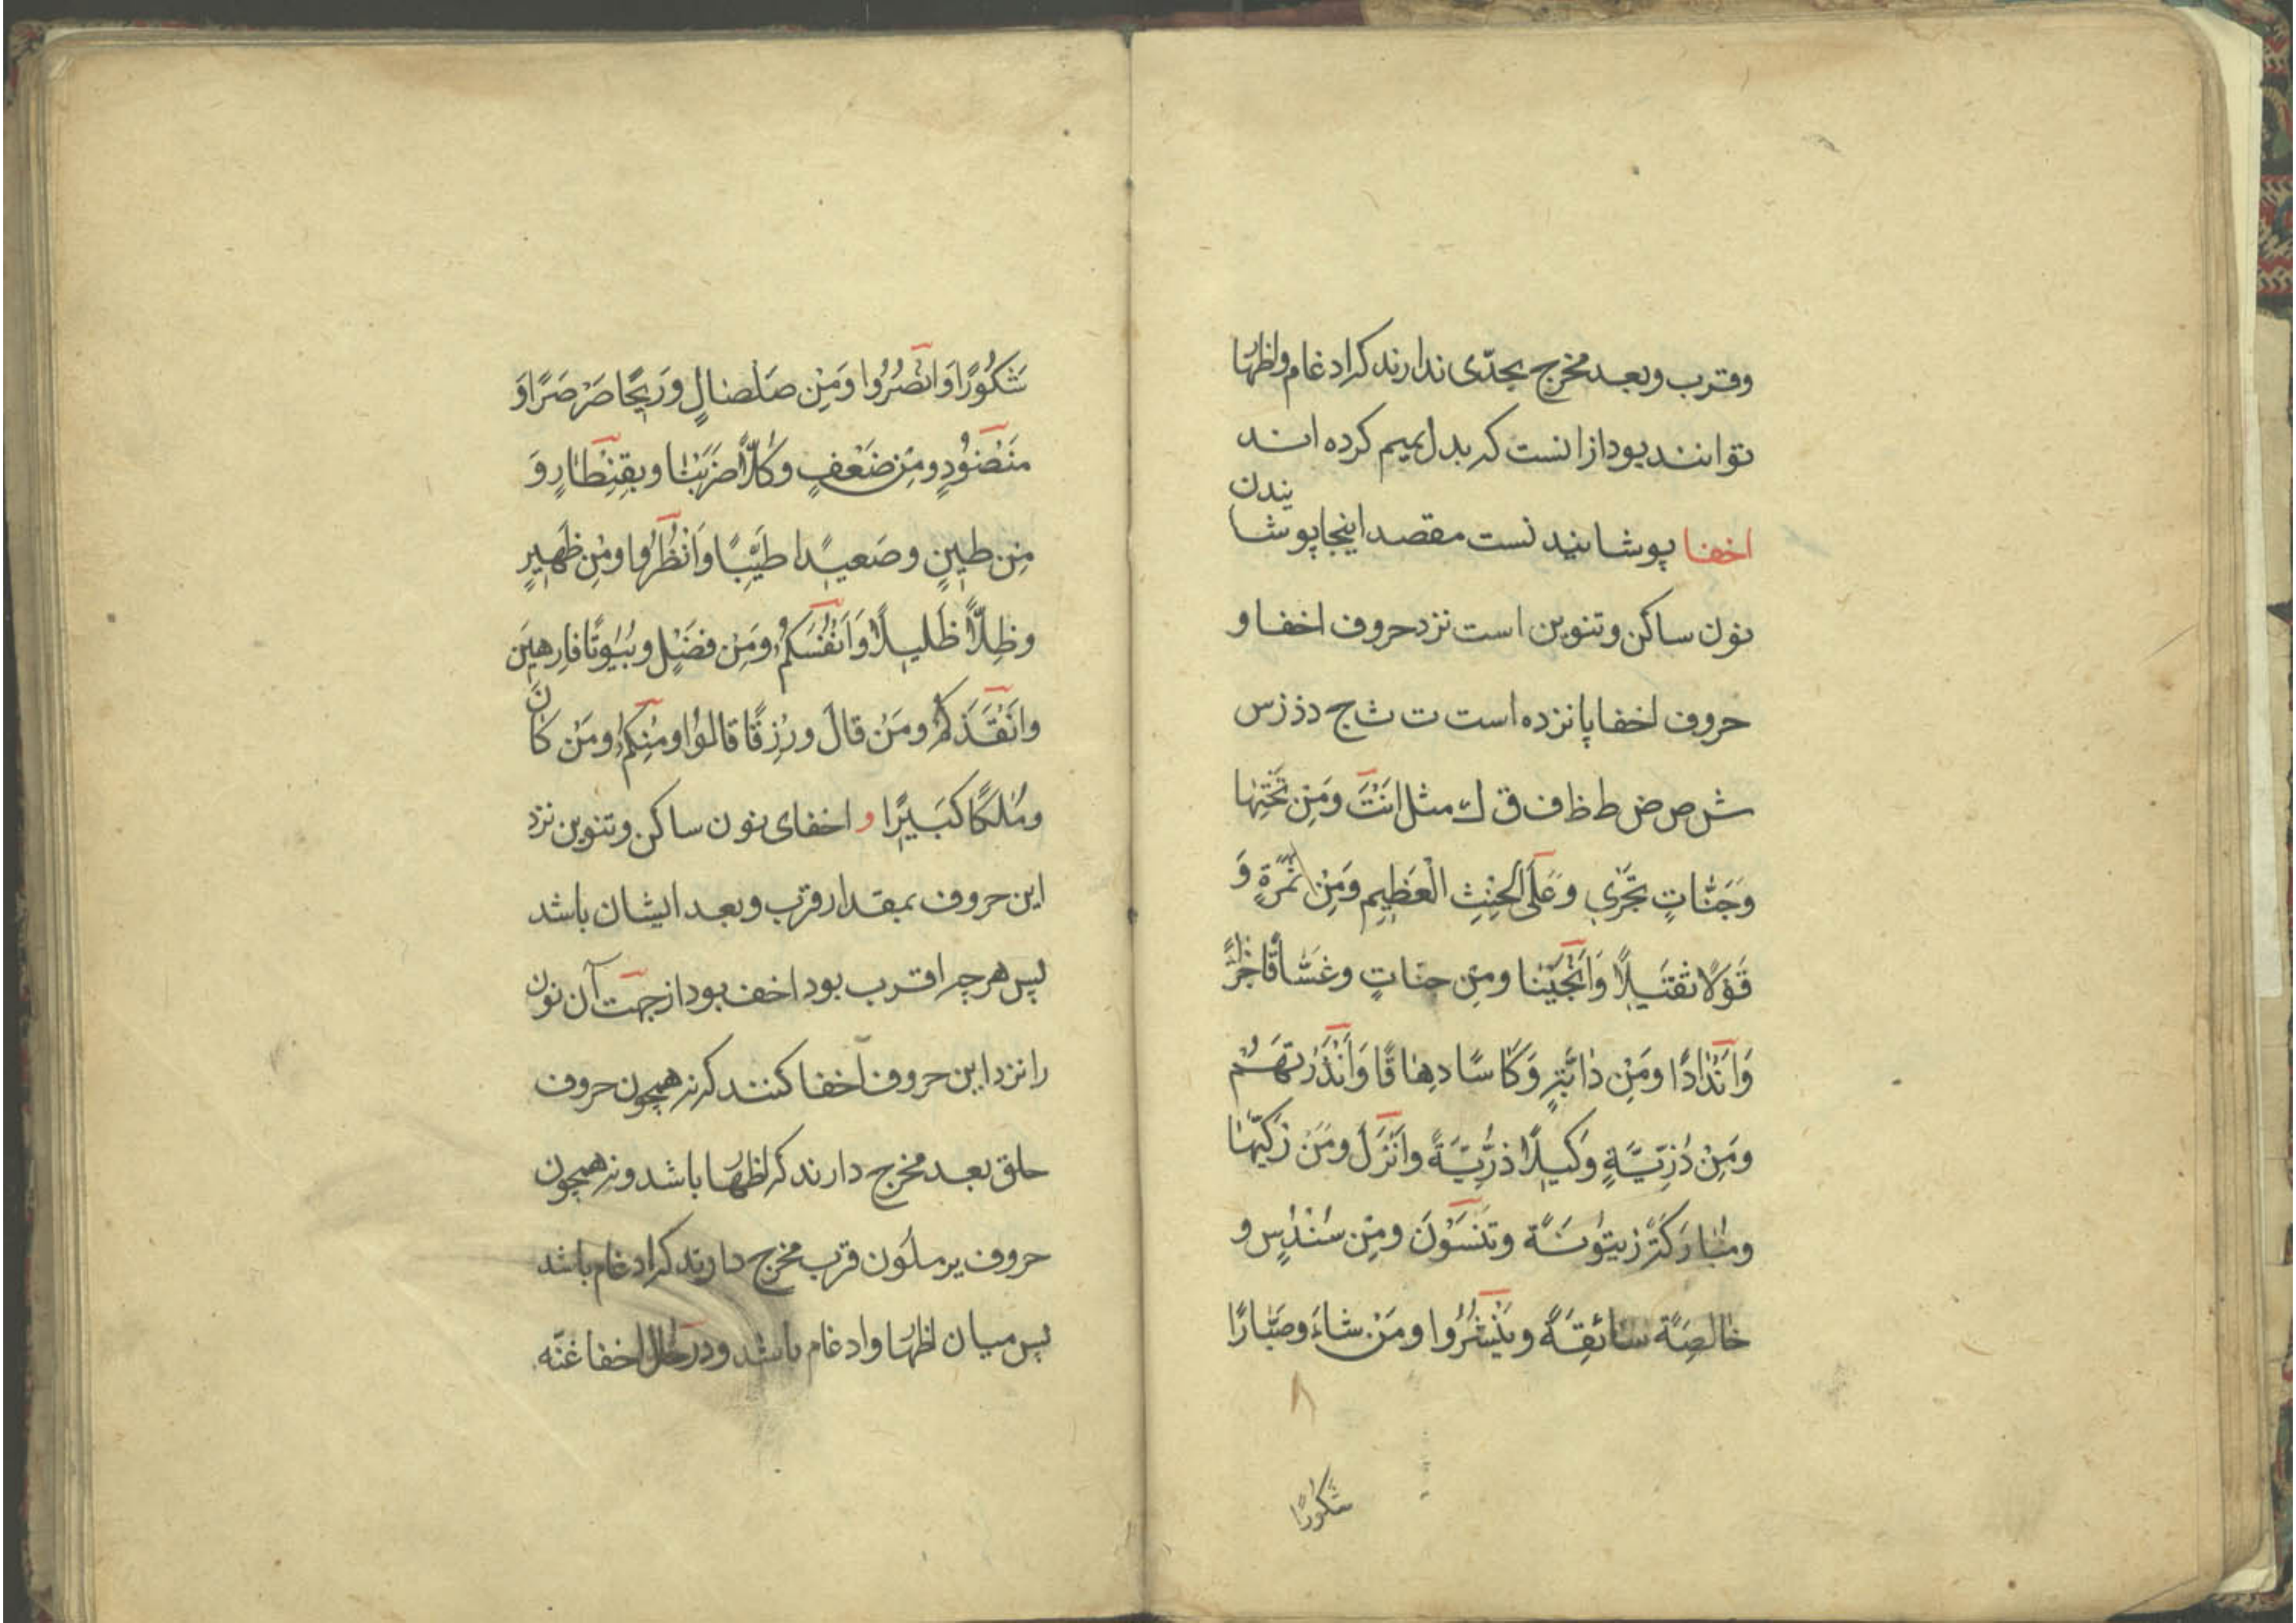 وقرب وبعد مخرج بحدّی ندارند که ادغام و اظهار
توانند بود از انست که بدل بمیم کرده اند
اخفا پوشانیدنست مقصد اینجا پوشا
نیدن
نون ساکن وتنوین است نزد حروف اخفا و
حروف اخفا پانزده است ت ث ج د ذ ز س
ش ص ض ط ظ ف ق ك مثل اَنْتَ ومَنِ تَحْتِهَا
وَجَنَّاتٍ تَجْرِي وَعَلَى الْحِنْثِ الْعَظِيمِ ومِنْ ثَمَرَةٍ وَ
قَوْلًا ثَقِيلًا وَاَنْجَيْنا ومِنْ جنّاتٍ وغَسَّاقًا جَزَآءً
وَاَنْدَادًا ومِنْ دَابَّةٍ وَكَاسًا دِهَاقًا وَاَنْذَرْتَهُمْ
ومِنْ ذُرِّيَّةٍ وَكِيلًا ذُرِّيَّةً وَاَنْزَلَ ومَنْ زَكّيٰهَا
ومُبَارَكَةٍ زَيْتُونَةٍ وتَنْسَوْنَ ومِنْ سُنْدُسٍ و
خَالِصَةً سَائِغَةً ويَنْشُرُوا ومَنْ شَاءَ وصَبَّارًا
۸
شَكُورًا
شَكُورًا وَانْصُرُوا وَمِنْ صَلْصَالٍ ورِيحًا صَرْصَرًا وَ
مَنْضُودٍ ومِنْ ضَعْفٍ وكُلًّا ضَرَبْنَا وبِقِنْطَارٍ وَ
مِنْ طِينٍ وصَعِيدًا طَيِّبًا وَانْظُرُوا ومِنْ ظَهِيرٍ
وظِلًّا ظَلِيلًا وَاَنْفُسَكُمْ ومَنْ فَضْلٍ وبُيُوتًا فَارِهِينَ
وَاَنْقَذَكُمْ ومَنْ قَالَ ورِزْقًا قَالُوا ومِنْكُمْ ومَنْ كَانَ
ومُلْكًا كَبِيرًا و اخفای نون ساکن وتنوین نزد
این حروف بمقدار قرب وبعد ایشان باشد
پس هرچه اقرب بود اخف بود از جهت آن نون
را نزد این حروف اخفا کنند که نه همچون حروف
حلق بعد مخرج دارند که اظهار باشد ونه همچون
حروف یرملون قرب مخرج دارند که ادغام باشد
پس میان اظهار وادغام باشد ودر حال اخفا غنّه